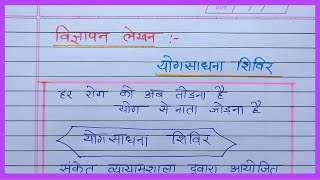 विज्ञापन लेखन :-
योगसाधना शिविर
हर रोग को अब तोड़ना है
योग से नाता जोड़ना है
योगसाधना शिविर
संकेत व्यायामशाला द्वारा आयोजित